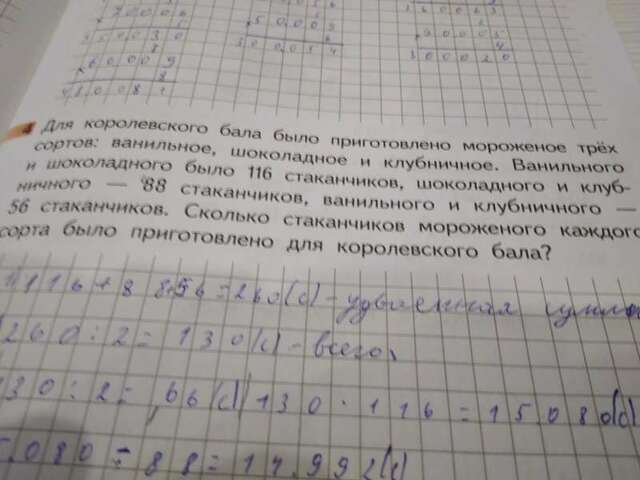 70006
35 00 30
8
60009
8
48008
50009
6
30 00 54
90005
4
3000 20
4 Для королевского бала было приготовлено мороженое трёх
сортов: ванильное, шоколадное и клубничное. Ванильного
и шоколадного было 116 стаканчиков, шоколадного и клуб-
ничного — 88 стаканчиков, ванильного и клубничного —
56 стаканчиков. Сколько стаканчиков мороженого каждого
сорта было приготовлено для королевского бала?
116+8 8+56=260(с)-удвоенная
260:2=130(с)-всего
30:2=66(с) 130·116=15080(с)
5080÷88=14.992(с)